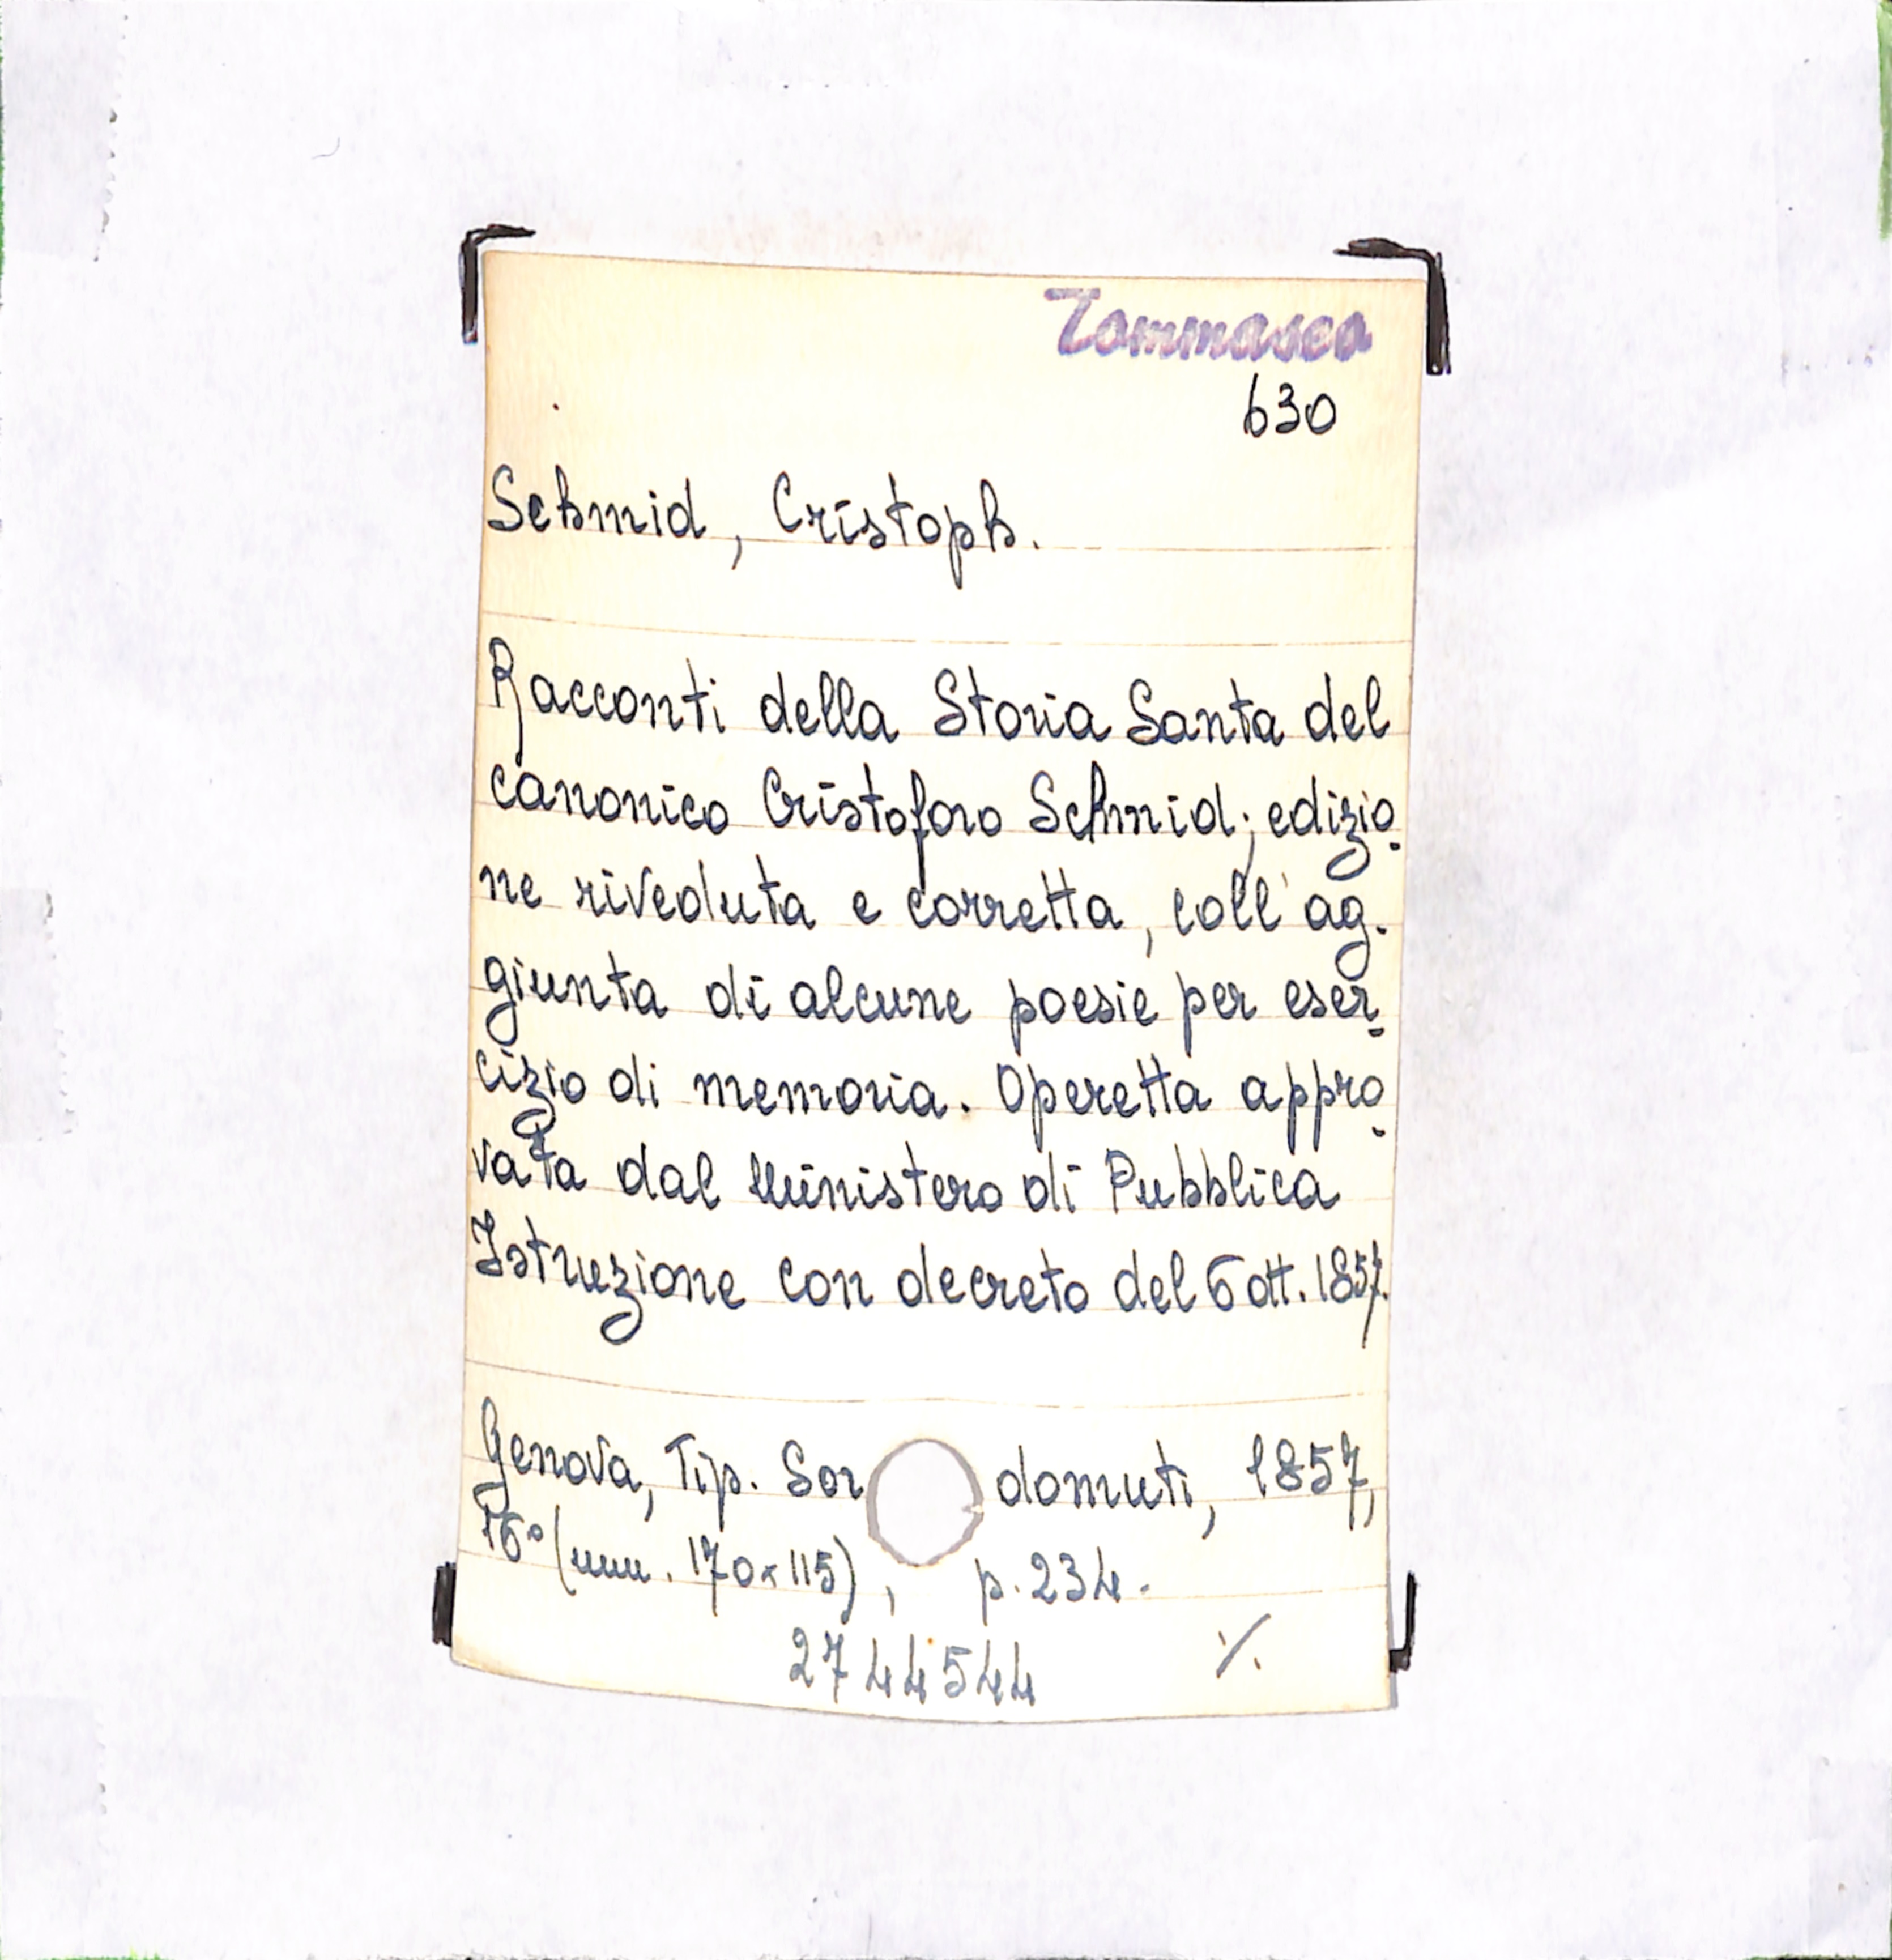 Tommaseo
630
Schmid, Cristoph.
Racconti della Storia Santa del
canonico Cristoforo Schmid; edizio-
ne riveduta e corretta, coll'ag-
giunta di alcune poesie per eser-
cizio di memoria. Operetta appro-
vata dal Ministero di Pubblica
Istruzione con decreto del 6 ott. 1857.
Genova, Tip. Sor domuti, 1857,
16° (mm. 170x115), p. 234.
2744544 ./.